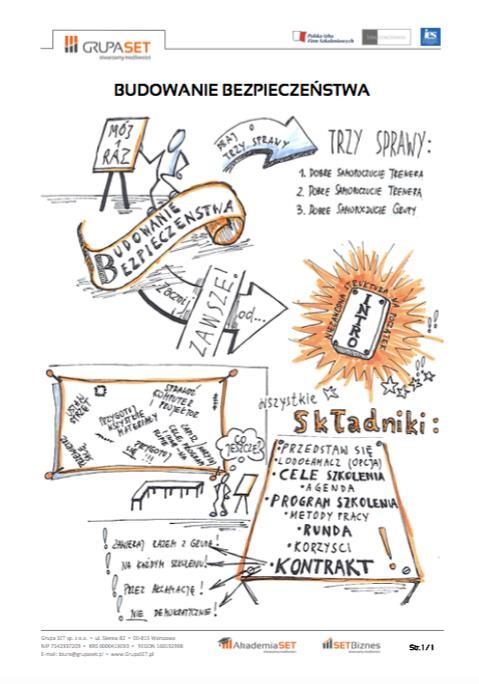 GRUPASET
stwarzamy możliwości
Polska Izba
Firm Szkoleniowych
BUDOWANIE BEZPIECZEŃSTWA
MÓJ
1
RAZ
DBAJ O
TRZY SPRAWY
TRZY SPRAWY:
1. DOBRE SAMOPOCZUCIE TRENERA
2. DOBRE SAMOPOCZUCIE TRENERA
3. DOBRE SAMOPOCZUCIE GRUPY
BUDOWANIE
BEZPIECZEŃSTWA
ZACZNIJ
ZAWSZE!
od...
NIEZAWODNA STRUKTURA NA POCZĄTEK
INTRO
!!
!!
USTAW
SPRZĘT
SPRAWDŹ
KOMPUTER
I PROJEKTOR
PRZYGOTUJ
WSZYSTKIE
MATERIAŁY
PRZYGOTUJ
SIĘ !!!
CO
JESZCZE?
WSZYSTKIE
SKŁADNIKI:
• PRZEDSTAW SIĘ
• LODOŁAMACZ (OPCJA)
• CELE SZKOLENIA
• AGENDA
• PROGRAM SZKOLENIA
• METODY PRACY
• RUNDA
• KORZYŚCI
• KONTRAKT
!
! ZAWIERAJ RAZEM Z GRUPĄ!
! NA KAŻDYM SZKOLENIU!
! PRZEZ AKLAMACJĘ!
! NIE DEMOKRATYCZNIE!
Grupa SET sp. z o.o. • ul. Sienna 82 • 00-815 Warszawa
E-mail: biuro@grupaset.pl • www.GrupaSET.pl
AkademiaSET
SETBiznes
Str. 1 / 1